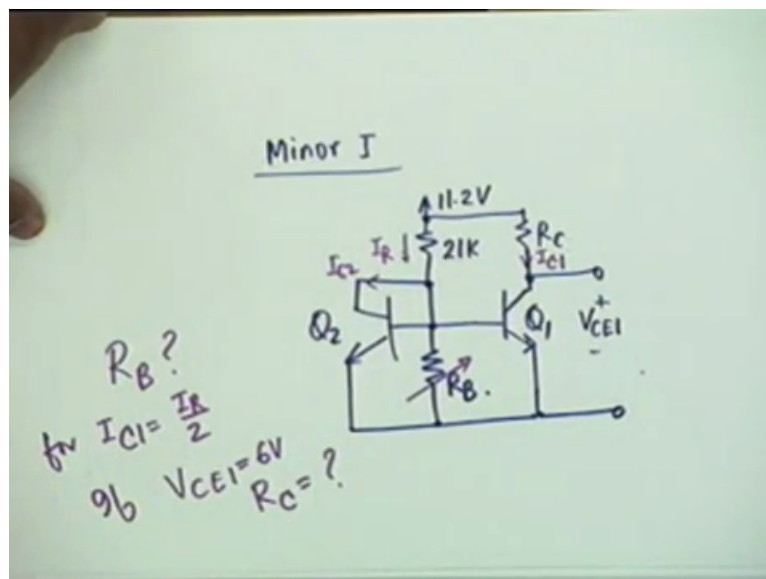 Minor I
11.2V
I_R ↓ 21K R_C
I_C2 I_C1
Q_2 Q_1 + V_CE1 -
R_B.
R_B ?
for I_C1 = I_R/2
gb V_CE1 = 6V
R_C = ?